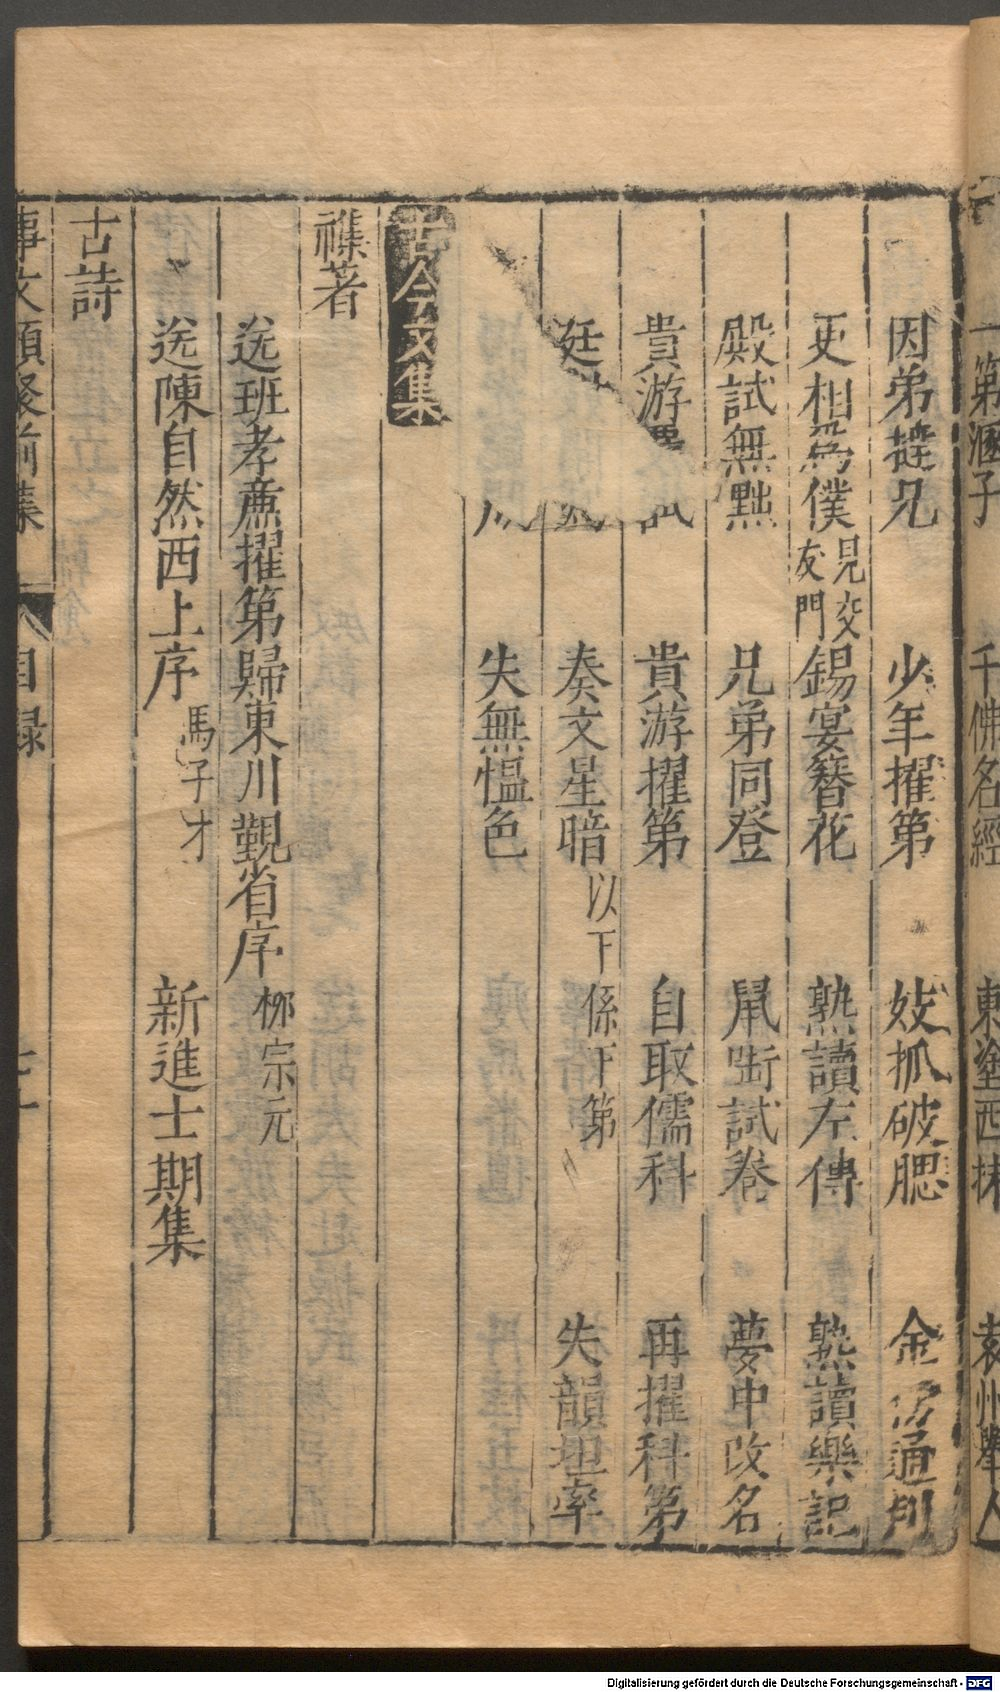 一第溷子 千佛名經 東塗西抹 袁州舉人
因弟撻兄 少年擢第 妓抓破腮 金 通刺
更相爲僕 見交友門 錫宴簪花 熟讀左傳 熟讀樂記
殿試無黜 兄弟同登 鼠嚙試卷 夢中改名
貴游 試 貴游擢第 自取儒科 再擢科第
廷 奏文星暗 以下係下第 失韻坦率
失無慍色
古今文集
襍著
送班孝廉擢第歸東川覲省序 柳宗元
送陳自然西上序 馬子才 新進士期集
古詩
事文類聚前集 目録
Digitalisierung gefördert durch die Deutsche Forschungsgemeinschaft - DFG